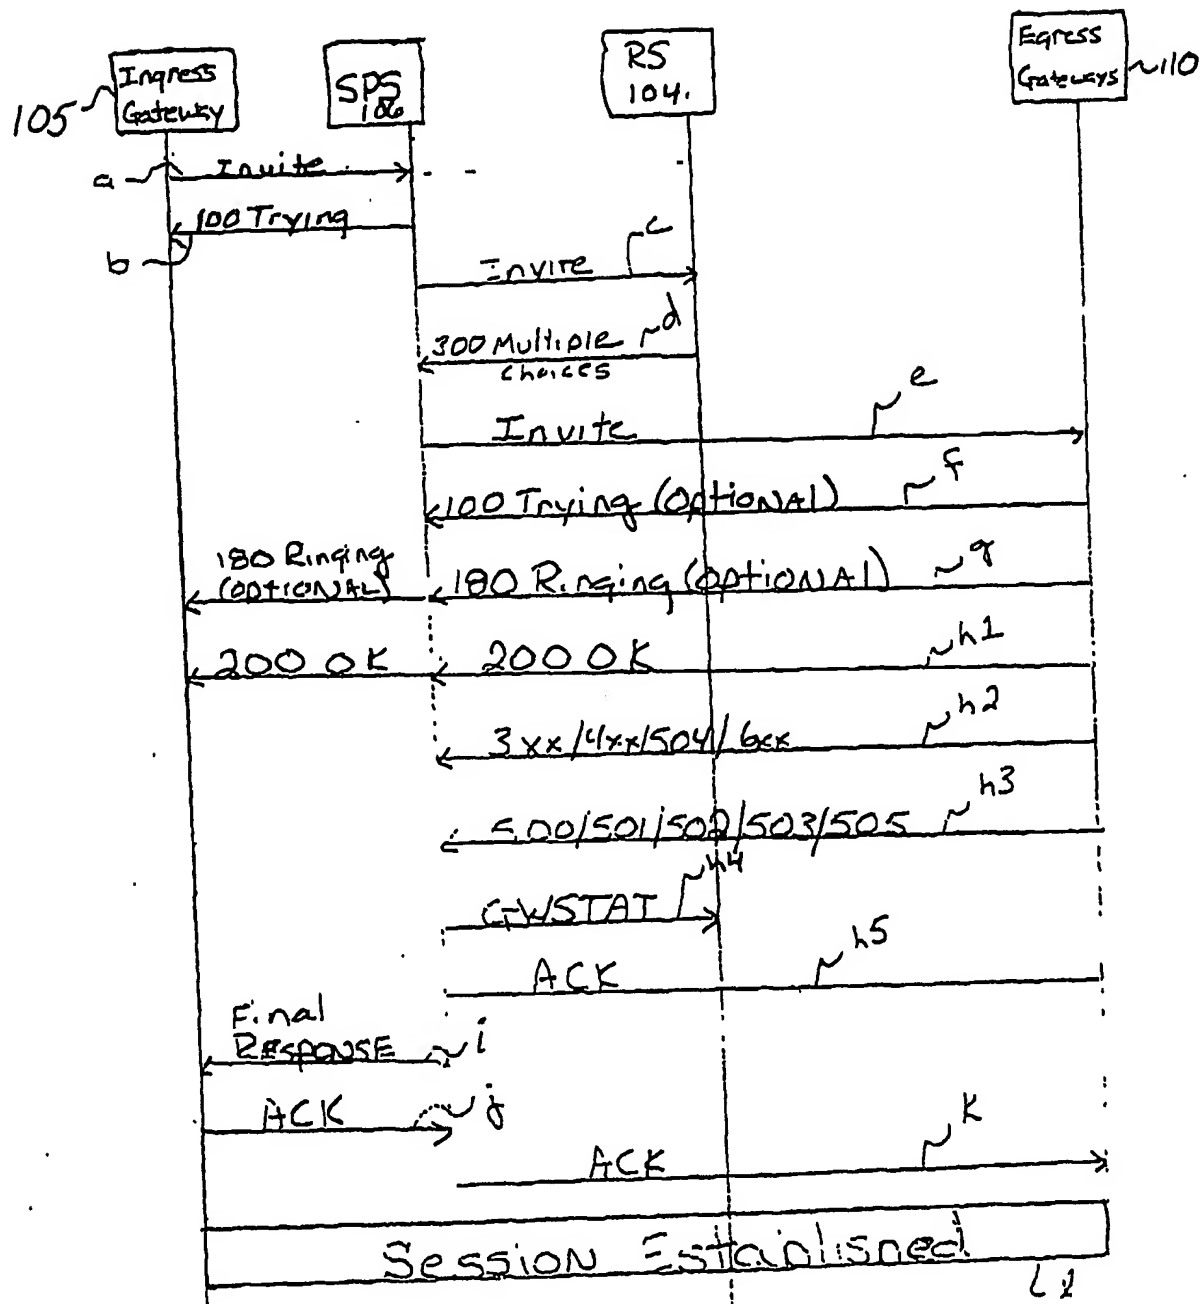 Ingress
Gateway
105
SPS
106
RS
104.
Egress
Gateways
110
a
Invite
100 Trying
b
Invite
c
300 Multiple
choices
d
Invite
e
100 Trying (OPTIONAL)
f
180 Ringing
(OPTIONAL)
180 Ringing (OPTIONAL)
g
200 OK
200 OK
h1
3xx/4xx/504/6xx
h2
500/501/502/503/505
h3
GWSTAT
h4
ACK
h5
Final
RESPONSE
i
ACK
j
ACK
k
Session Established